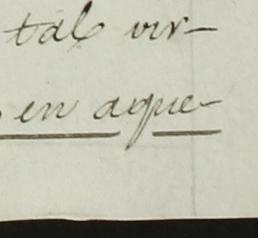 tal vir-
en aque-